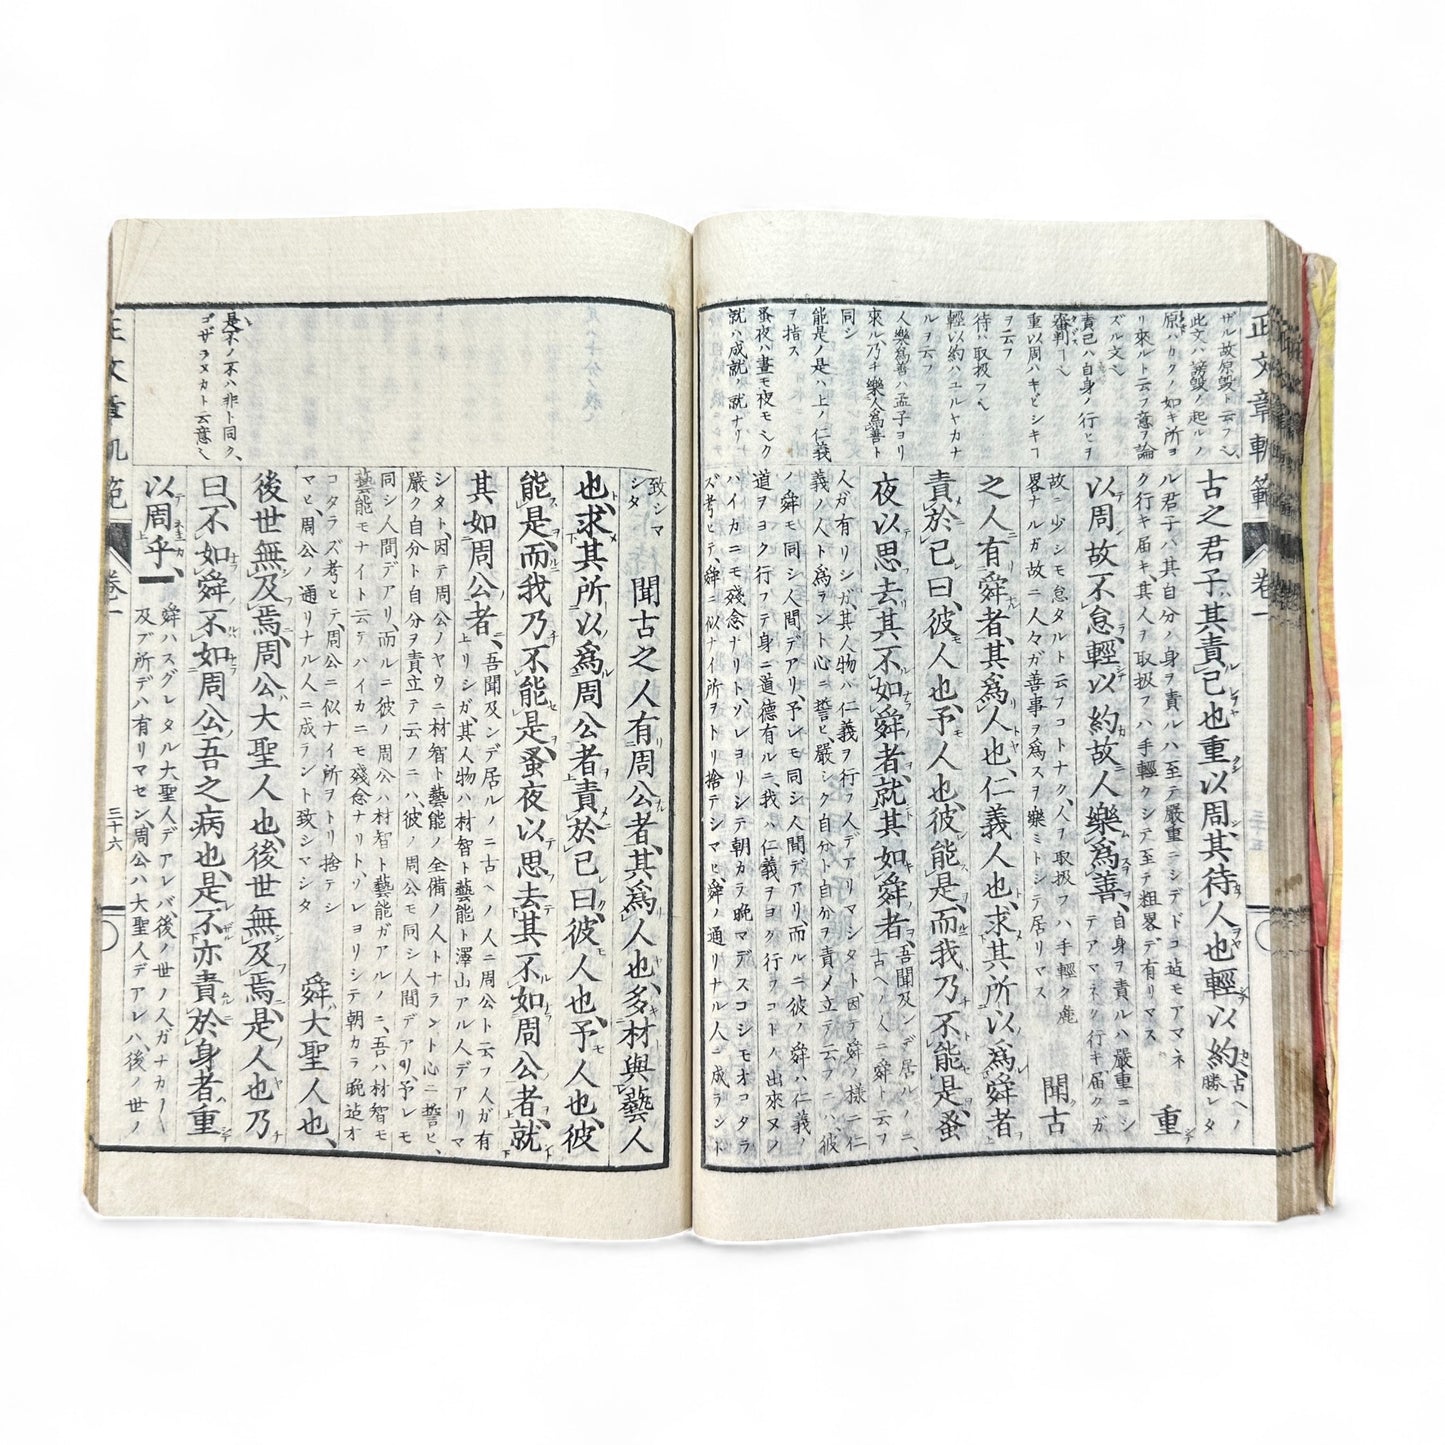 正文章軌範
卷一
三十五
ザル故原毀ト云フ
此文ハ謗毀ノ起ルノ
原ハカクノ如キ所ヨ
リ來ルト云フ意ヲ論
ズル文
責己ハ自身ノ行ヒヲ
重以周ハキビシキヿ
ヲ云フ
待ハ取扱フ
輕以約ハユルヤカナ
ルヲ云フ
人樂爲善ハ孟子ヨリ
來ル、乃チ樂人爲善ト
同シ
能是ノ是ハ上ノ仁義
ヲ指ス
蚤夜ハ晝モ夜モ
就ハ成就ノ就ナリ
古之君子、其責己也重以周、其待人也輕以約、古ヘノ勝レタ
ル君子ハ、其自分ノ身ヲ責ルハ至テ嚴重ニシテドコ迠モアマネ
ク行キ届キ、其人ヲ取扱フハ手輕クシテ至テ粗畧デ有リマス 重
以周故不怠、輕以約故人樂爲善、自身ヲ責ルハ嚴重ニシ
テアマネク行キ届クガ
故ニ少シモ怠タルト云フコトナク、人ヲ取扱フハ手輕ク麁
畧ナルガ故ニ人々ガ善事ヲ爲スヲ樂ミトシテ居リマス 聞古
之人有舜者、其爲人也、仁義人也、求其所以爲舜者
責於己曰、彼人也、予人也、彼能是、而我乃不能是、蚤
夜以思、去其不如舜者、就其如舜者、吾聞及ンデ居ルニ、
古ヘノ人ニ舜ト云フ
人ガ有リシガ、其人物ハ仁義ヲ行フ人デアリマシタト、因テ舜ノ樣ニ仁
義ノ人ト爲ラント心ニ誓ヒ、嚴シク自分ト自分ヲ責メ立テ云フニハ、彼
ノ舜モ同シ人間デアリ、予レモ同シ人間デアリ、而ルニ彼ノ舜ハ仁義ノ
道ヲヨク行フテ身ニ道德有ルニ、我ハ仁義ヲヨク行フコトノ出來ヌノ
ハイカニモ殘念ナリト、ソレヨリシテ朝カラ晩マデスコシモオコタラ
ズ考ヒテ、舜ニ似ナイ所ヲトリ捨テシマヒ、舜ノ通リナル人ニ成ラント
是不ノ不ハ非ト同ク、
ゴザラヌカト云意
致シマ
シタ
聞古之人有周公者、其爲人也、多材與藝人
也、求其所以爲周公者、責於己曰、彼人也、予人也、彼
能是、而我乃不能是、蚤夜以思、去其不如周公者、就
其如周公者、吾聞及ンデ居ルノニ古ヘノ人ニ周公ト云フ人ガ有
リシガ、其人物ハ材智ト藝能ト澤山アル人デアリマ
シタト、因テ周公ノヤウニ材智ト藝能ノ全備ノ人トナラント心ニ誓ヒ、
嚴ク自分ト自分ヲ責立テ云フニハ、彼ノ周公モ同シ人間デアリ、予レモ
同シ人間デアリ、而ルニ彼ノ周公ハ材智ト藝能ガアルノニ、吾ハ材智モ
藝能モナイト云テハイカニモ殘念ナリト、ソレヨリシテ朝カラ晩迠オ
コタラズ考ヒテ、周公ニ似ナイ所ヲトリ捨テシ
マヒ、周公ノ通リナル人ニ成ラント致シマシタ 舜大聖人也、
後世無及焉、周公大聖人也、後世無及焉、是人也乃
曰、不如舜、不如周公、吾之病也、是不亦責於身者重
以周乎、舜ハスグレタル大聖人デアレバ、後ノ世ノ人ガナカ/\
及ブ所デハ有リマセン、周公ハ大聖人デアレバ、後ノ世ノ
正文章軌範
卷一
三十六